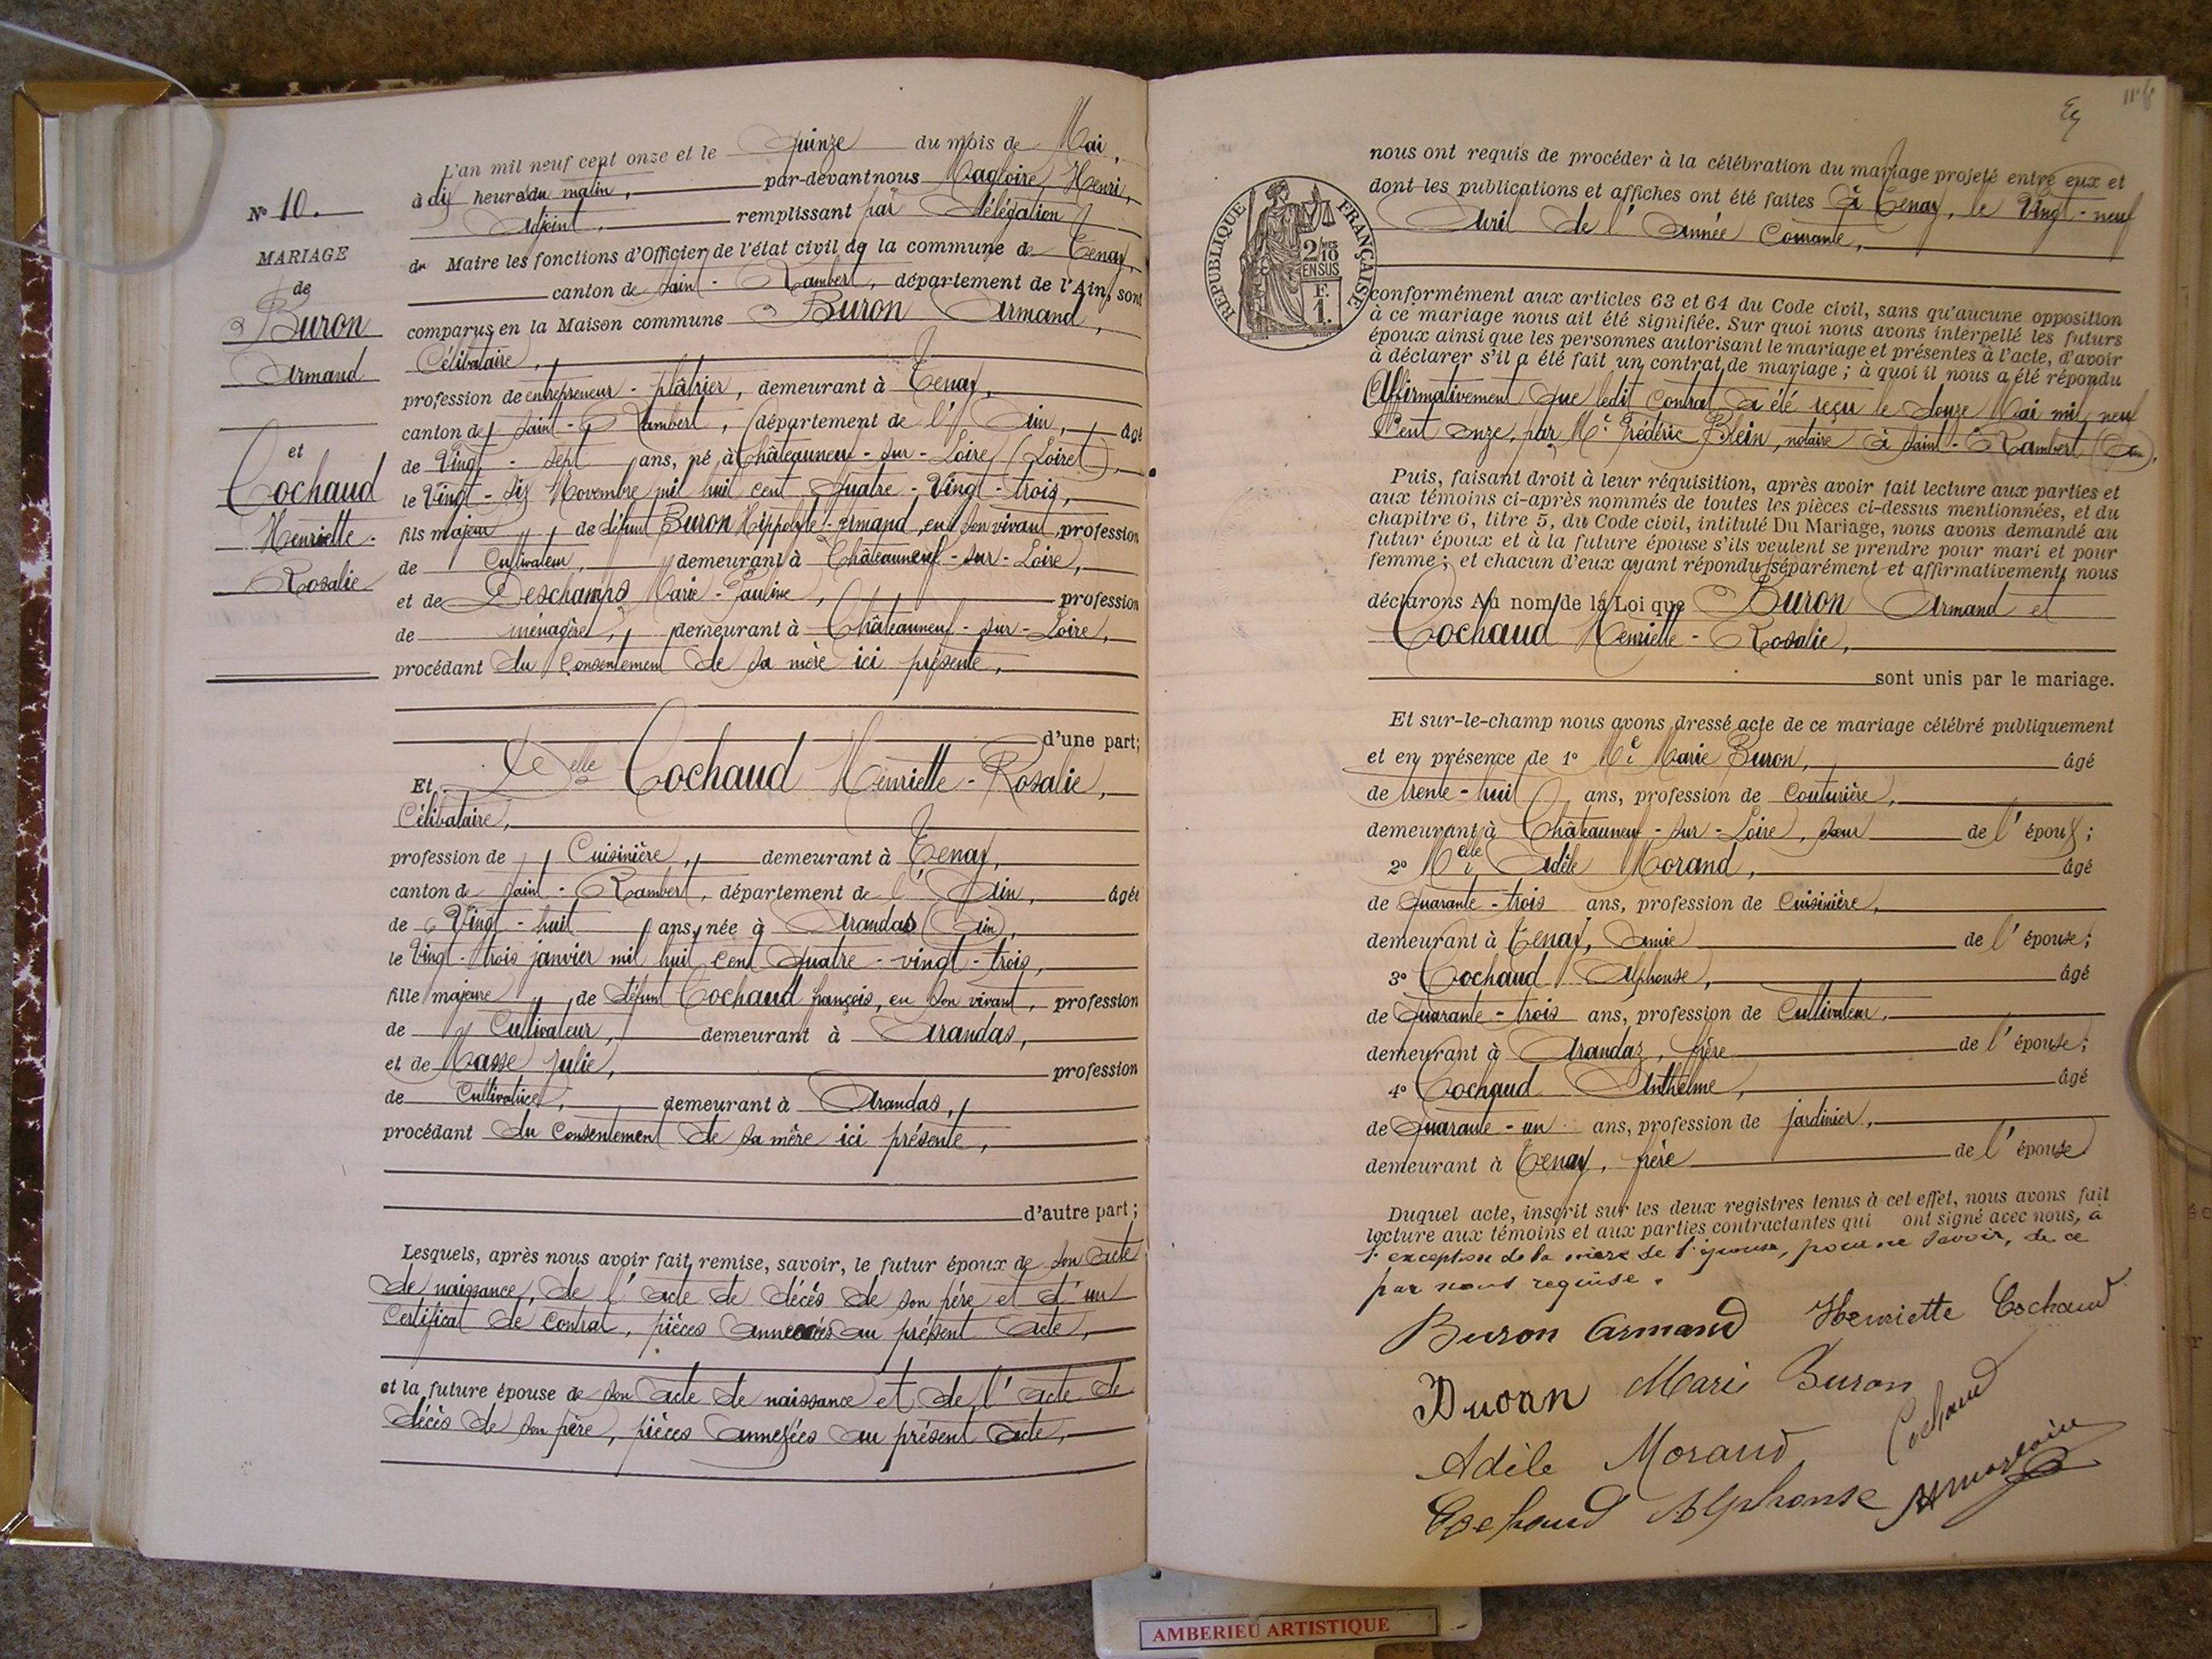 L'an mil neuf cent onze et le quinze du mois de Mai,
à dix heures du matin, par-devant nous Magloire, Henri,
Adjoint, remplissant par délégation
du Maire les fonctions d'Officier de l'état civil de la commune de Tenay,
canton de Saint-Rambert, département de l'Ain, sont
comparus en la Maison commune Buron Armand,
Célibataire,
profession de entrepreneur-plâtrier, demeurant à Tenay,
canton de Saint-Rambert, département de l'Ain, âgé
de Vingt-sept ans, né à Châteauneuf-sur-Loire (Loiret),
le Vingt-six Novembre mil huit cent quatre-Vingt-trois,
fils majeur de défunt Buron Hippolyte-Armand, en son vivant, profession
de Cultivateur, demeurant à Châteauneuf-sur-Loire,
et de Deschamps Marie-Pauline, profession
de ménagère, demeurant à Châteauneuf-sur-Loire,
procédant du Consentement de sa mère ici présente,
d'une part;
Et Delle Cochaud Henriette-Rosalie,
Célibataire,
profession de Cuisinière, demeurant à Tenay,
canton de Saint-Rambert, département de l'Ain, âgée
de Vingt-huit ans, née à Arandas (Ain),
le Vingt-trois janvier mil huit cent quatre-vingt-trois,
fille majeure de défunt Cochaud françois, en son vivant, profession
de Cultivateur, demeurant à Arandas,
et de Masse Julie, profession
de Cultivatrice, demeurant à Arandas,
procédant du Consentement de sa mère ici présente,
d'autre part;
Lesquels, après nous avoir fait remise, savoir, le futur époux de son acte
de naissance, de l'acte de décès de son père et d'un
Certificat de Contrat, pièces annexées au présent acte,
et la future épouse de son acte de naissance et de l'acte de
décès de son père, pièces annexées au présent acte,
No 10.
MARIAGE
de
Buron
Armand
et
Cochaud
Henriette-
Rosalie
nous ont requis de procéder à la célébration du mariage projeté entre eux et
dont les publications et affiches ont été faites à Tenay, le Vingt-neuf
Avril de l'Année Courante,
RÉPUBLIQUE FRANÇAISE
2/10MES
EN SUS
F.
1.
conformément aux articles 63 et 64 du Code civil, sans qu'aucune opposition
à ce mariage nous ait été signifiée. Sur quoi nous avons interpellé les futurs
époux ainsi que les personnes autorisant le mariage et présentes à l'acte, d'avoir
à déclarer s'il a été fait un contrat de mariage; à quoi il nous a été répondu
Affirmativement que ledit Contrat a été reçu le douze Mai mil neuf
Cent onze, par Me Frédéric Blein, notaire à Saint-Rambert (Ain).
Puis, faisant droit à leur réquisition, après avoir fait lecture aux parties et
aux témoins ci-après nommés de toutes les pièces ci-dessus mentionnées, et du
chapitre 6, titre 5, du Code civil, intitulé Du Mariage, nous avons demandé au
futur époux et à la future épouse s'ils veulent se prendre pour mari et pour
femme; et chacun d'eux ayant répondu séparément et affirmativement, nous
déclarons Au nom de la Loi que Buron Armand et
Cochaud Henriette-Rosalie,
sont unis par le mariage.
Et sur-le-champ nous avons dressé acte de ce mariage célébré publiquement
et en présence de 1° Me Marie Buron, âgé
de trente-huit ans, profession de Couturière,
demeurant à Châteauneuf-sur-Loire, sœur de l'époux;
2° Melle Adèle Morand, âgé
de Quarante-trois ans, profession de Cuisinière,
demeurant à Tenay, Amie de l'épouse;
3° Cochaud Alphonse, âgé
de Quarante-trois ans, profession de Cultivateur,
demeurant à Arandaz, frère de l'épouse;
4° Cochaud Anthelme, âgé
de Quarante-un ans, profession de jardinier,
demeurant à Tenay, frère de l'épouse
Duquel acte, inscrit sur les deux registres tenus à cet effet, nous avons fait
lecture aux témoins et aux parties contractantes qui ont signé avec nous, à
l'exception de la mère de l'épouse, pour ne savoir, de ce
par nous requise.
Buron Armand Henriette Cochaud
Marie Buron
Cochaud
Adèle Morand
Cochaud Alphonse Hmagloire
AMBERIEU ARTISTIQUE